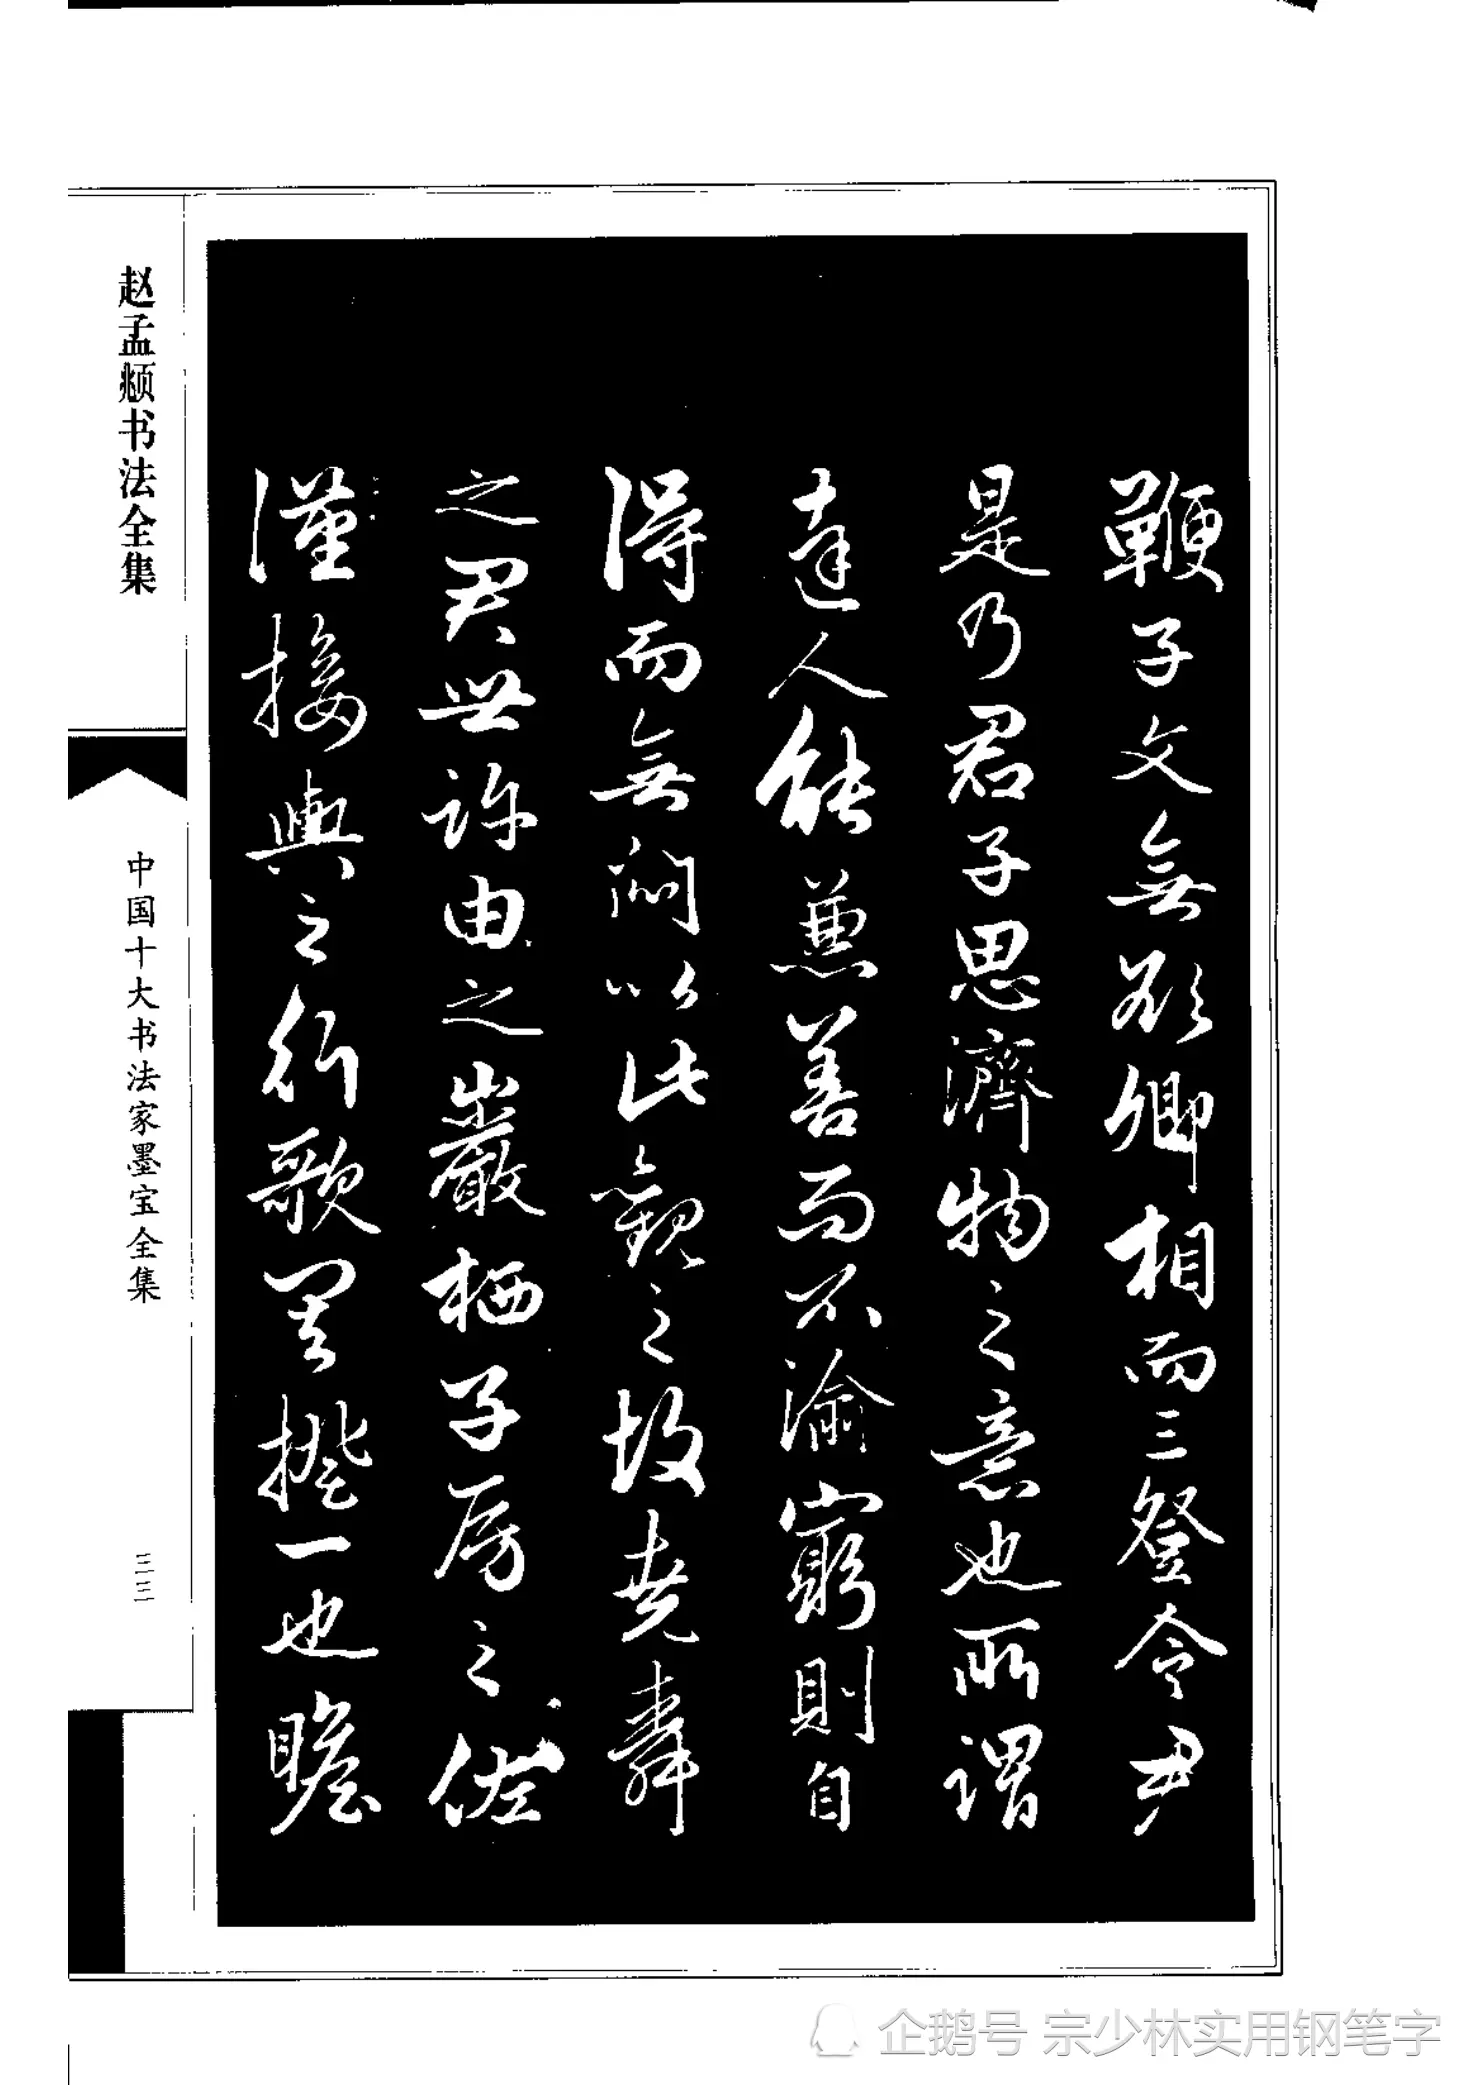 鞭子文無欲卿相而三登令尹
是乃君子思濟物之意也所謂
達人能兼善而不渝窮則自
得而無悶以此觀之故堯舜
之君世許由之巖栖子房之佐
漢接輿之行歌其揆一也瞻
赵孟頫书法全集
中国十大书法家墨宝全集
三三
企鹅号 宗少林实用钢笔字